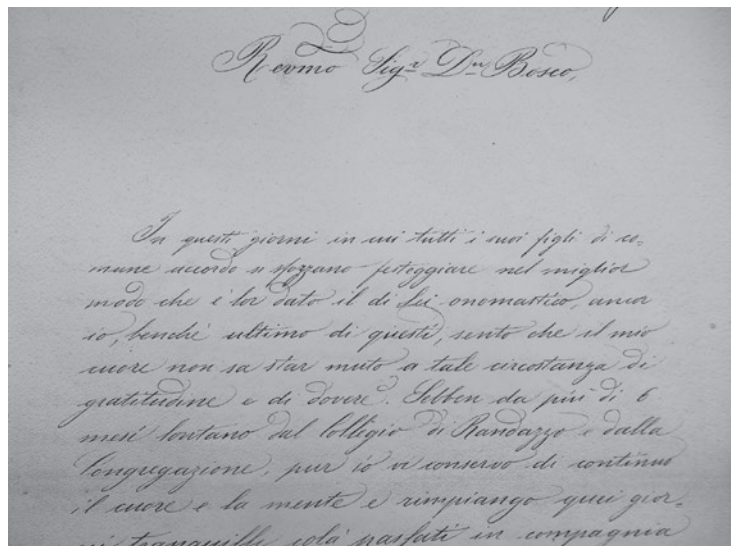 Revmo Sigr Dn Bosco,
In questi giorni in cui tutti i suoi figli di co=
mune accordo si sforzano festeggiare nel miglior
modo che è lor dato il di Lei onomastico, ancor
io, benchè ultimo di questi, sento che il mio
cuore non sa star muto a tale circostanza di
gratitudine e di dovere. Sebben da più di 6
mesi lontano dal Collegio di Randazzo e dalla
Congregazione, pur io vi conservo di continuo
il cuore e la mente e rimpiango quei gior-
ni tranquilli colà passati in compagnia